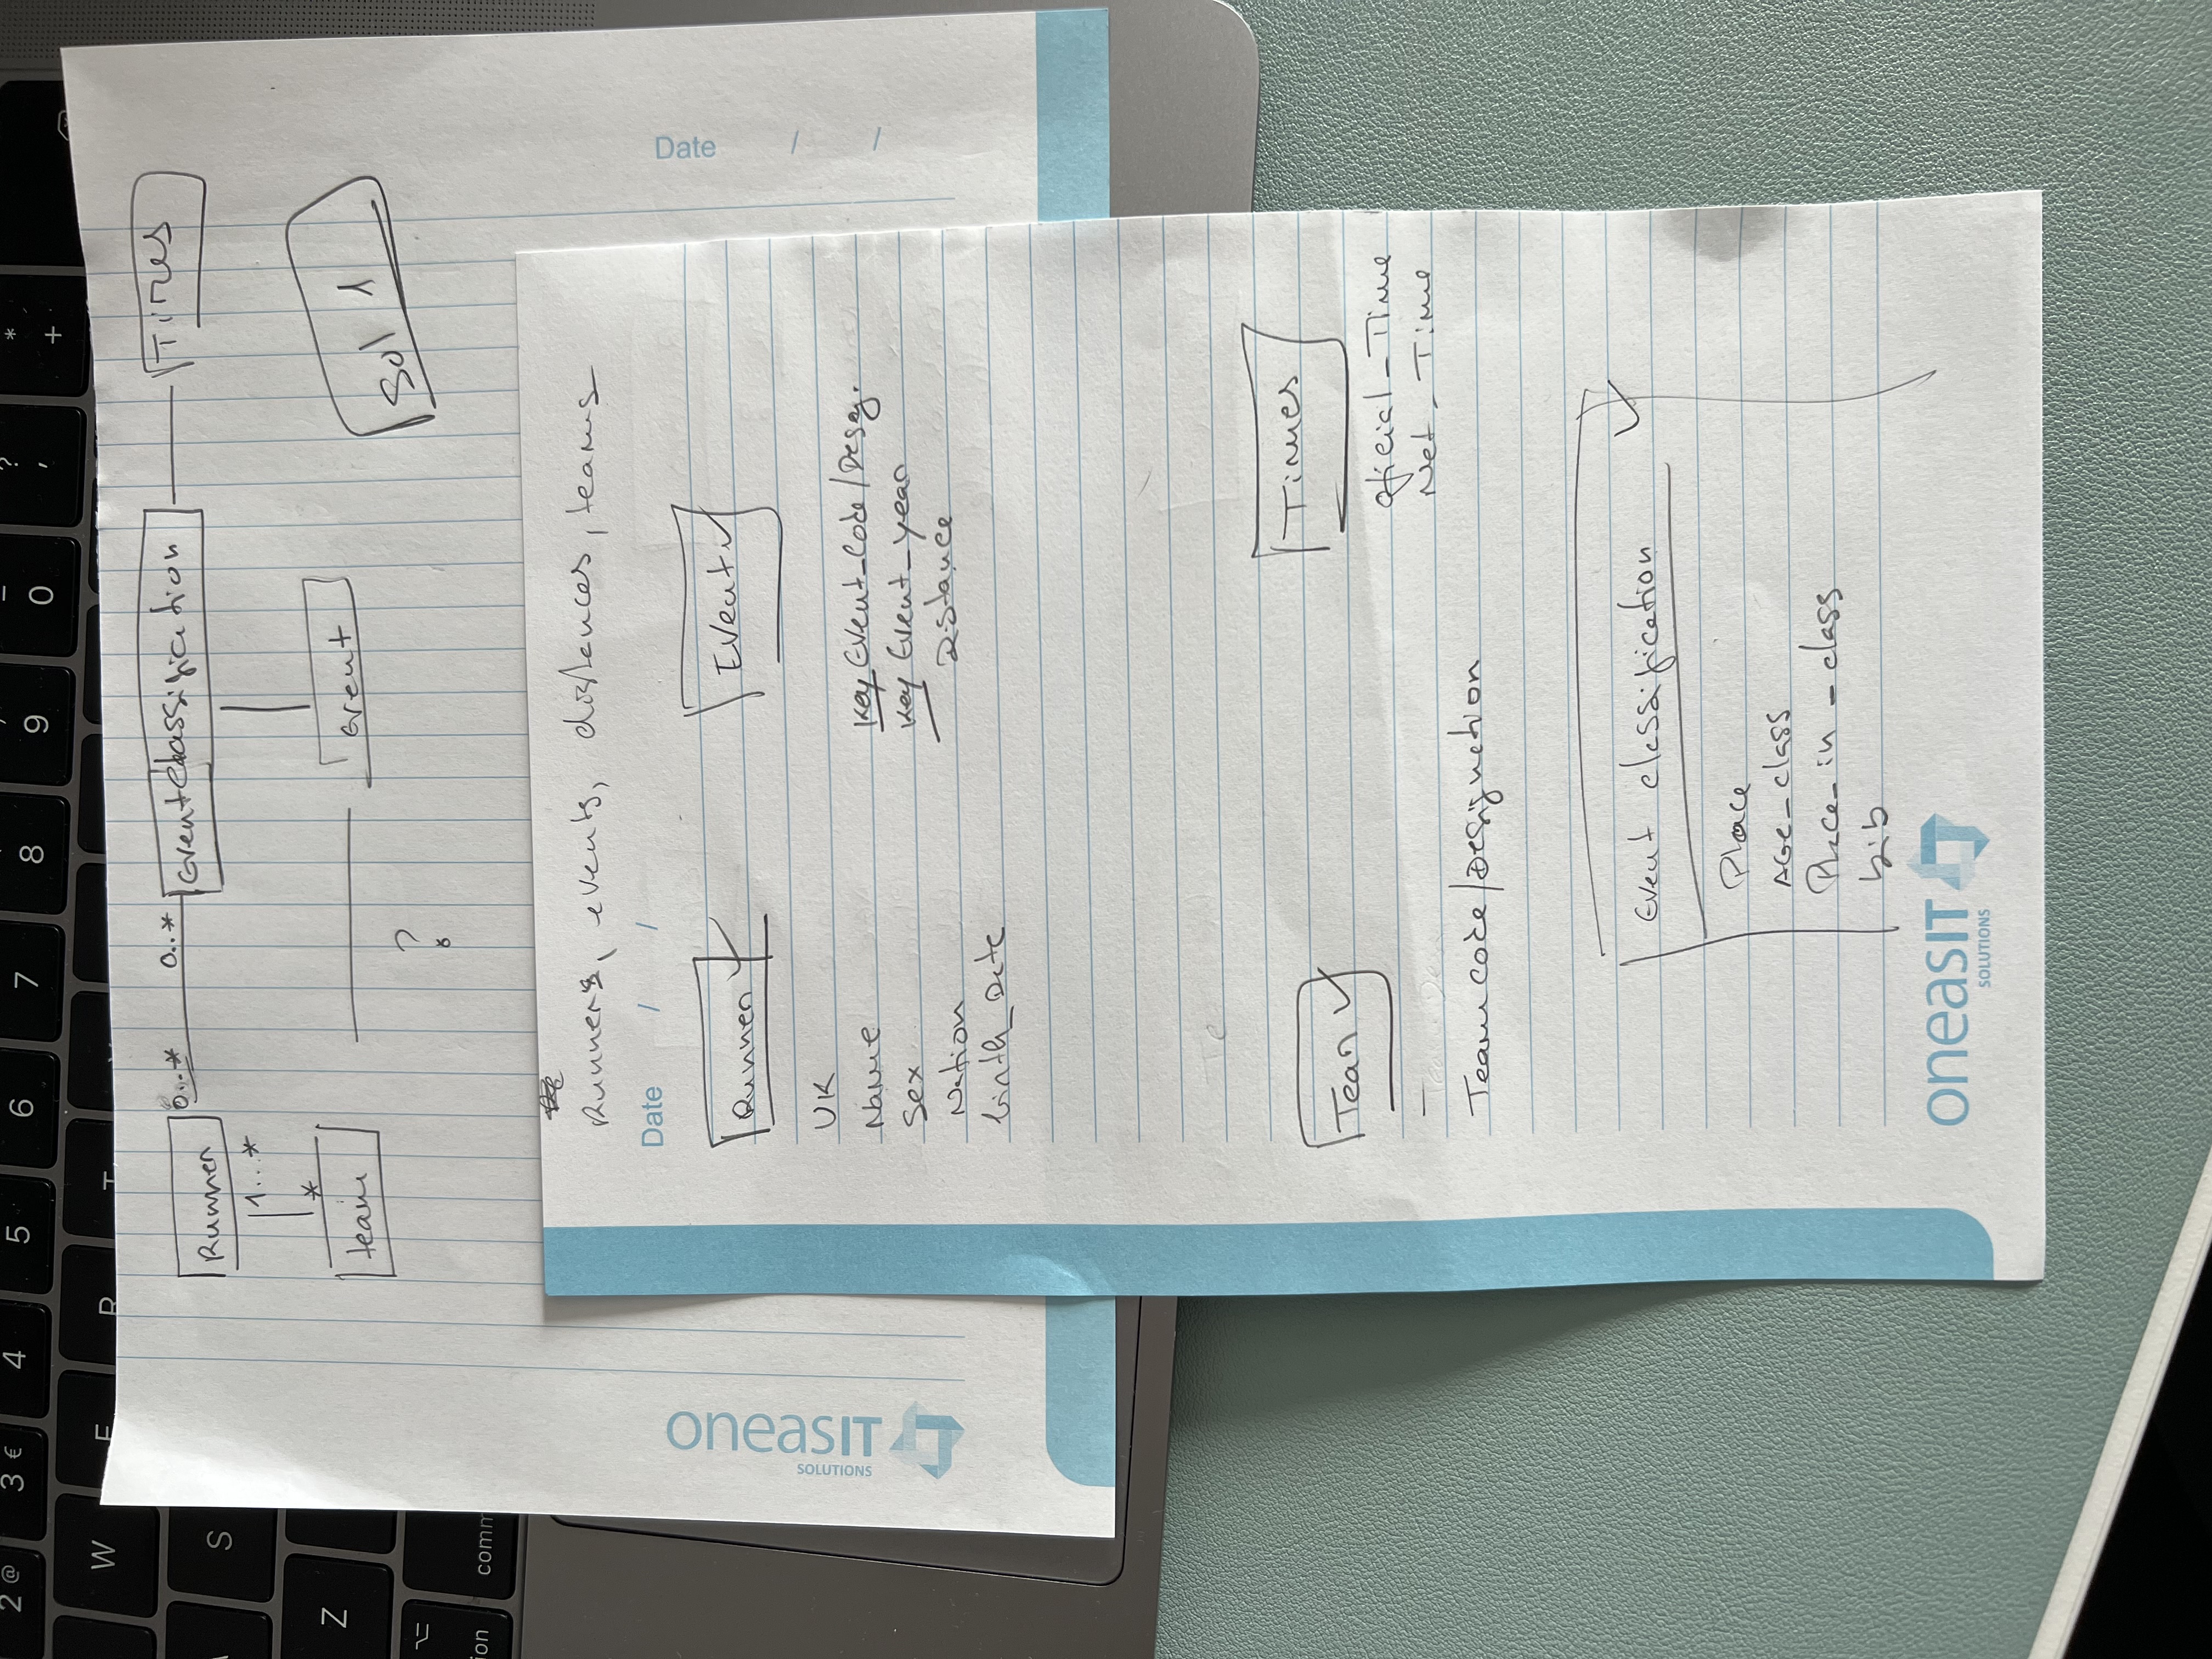 2 @
3 €
4
5
6
7
8
9
0
?
,
*
+
W
E
R
T
S
Z
comm
Runner
0..*
0..*
EventClassification
Times
1...*
*
team
Event
?
Sol 1
oneasIT
SOLUTIONS
Date / /
Runners, events, distances, teams
Date / /
Runner
Event
UK
Name
Sex
Nation
birth_Date
Key Event_Code/Desig.
Key Event_year
Distance
Team
Times
oficial_Time
Net_Time
Team code/Designation
Event classification
Place
AGe_class
Place_in_class
bib
oneasIT
SOLUTIONS